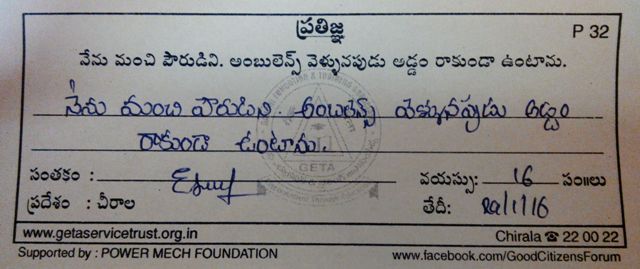 ప్రతిజ్ఞ P 32
నేను మంచి పౌరుడిని. అంబులెన్స్ వెళ్ళునపుడు అడ్డం రాకుండా ఉంటాను.
నేను మంచి పౌరుడిని అంబులెన్స్ వెళ్ళునప్పుడు అడ్డం
రాకుండా ఉంటాను.
సంతకం : వయస్సు: 16 సం॥లు
ప్రదేశం : చీరాల తేదీ:
www.getaservicetrust.org.in Chirala ☎ 22 00 22
Supported by : POWER MECH FOUNDATION www.facebook.com/GoodCitizensForum
GETA